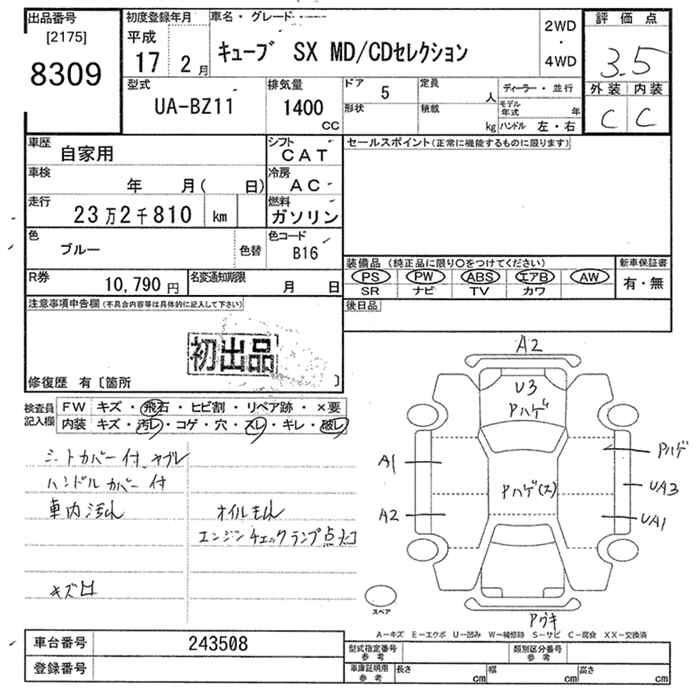 出品番号
[2175]
8309
初度登録年月
平成
17 2月
車名・グレード
キューブ SX MD/CDセレクション
2WD
・
4WD
評価点
3.5
外装 内装
C C
型式
UA-BZ11
排気量
1400
CC
ドア 5
形状
定員 人
積載 kg
ディーラー・並行
モデル年式 年
ハンドル 左・右
車歴
自家用
シフト
CAT
セールスポイント(正常に機能するものに限ります)
車検
年 月( 日)
冷房
AC
走行
23万2千810 km
燃料
ガソリン
色
ブルー
色替
色コード
B16
装備品(純正品に限り○をつけてください)
PS PW ABS エアB AW
SR ナビ TV カワ
新車保証書
有・無
R券
10,790円
名変通知期限
月 日
後日品
注意事項申告欄(不具合内容等は具体的に記入して下さい)
初出品
修復歴 有〔箇所 〕
検査員記入欄
FW キズ・飛石・ヒビ割・リペア跡・×要
内装 キズ・汚レ・コゲ・穴・スレ・キレ・破レ
シートカバー付、ヤブレ
ハンドルカバー付
車内
オイル
エンジンチェックランプ点
キズ凹
A2
U3
Pハゲ
A1
Pハゲ
Pハゲ(ス)
UA3
A2
UA1
スペア
Pヴキ
A−キズ E−エクボ U−凹み W−補修跡 S−サビ C−腐食 XX−交換済
車台番号
243508
登録番号
型式指定番号
参考
類別区分番号
参考
車庫証明用
参考
長さ cm
幅 cm
高さ cm